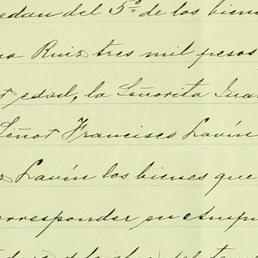 edan del 5º de los biene
na Ruiz tres mil pesos
r edad, la Señorita Jua
Señor Francisco Lavín
Lavín los bienes que
orresponder en Ampu